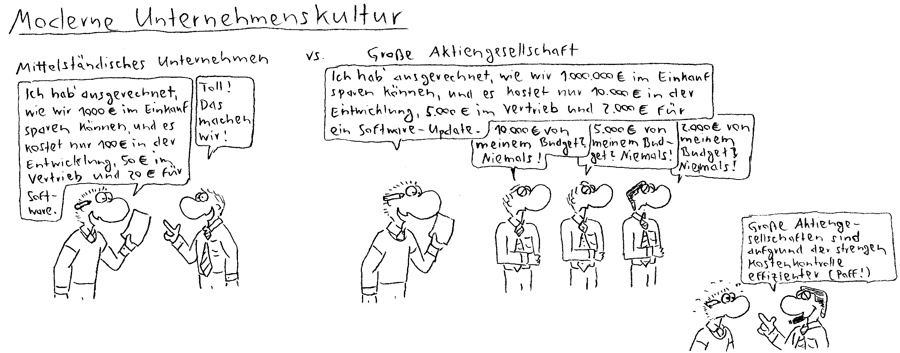 Moderne Unternehmenskultur
Mittelständisches Unternehmen
vs.
Große Aktiengesellschaft
Ich hab' ausgerechnet,
wie wir 1000 € im Einkauf
sparen können, und es
kostet nur 100 € in der
Entwicklung, 50 € im
Vertrieb und 20 € für
Soft-
ware.
Toll!
Das
machen
wir!
Ich hab' ausgerechnet, wie wir 1.000.000 € im Einkauf
sparen können, und es kostet nur 10.000 € in der
Entwicklung, 5.000 € im Vertrieb und 2.000 € für
ein Software-Update.
10.000 € von
meinem Budget?
Niemals!
5.000 € von
meinem Bud-
get? Niemals!
2.000 € von
meinem
Budget?
Niemals!
Große Aktienge-
sellschaften sind
aufgrund der strengen
Kostenkontrolle
effizienter (Paff!)